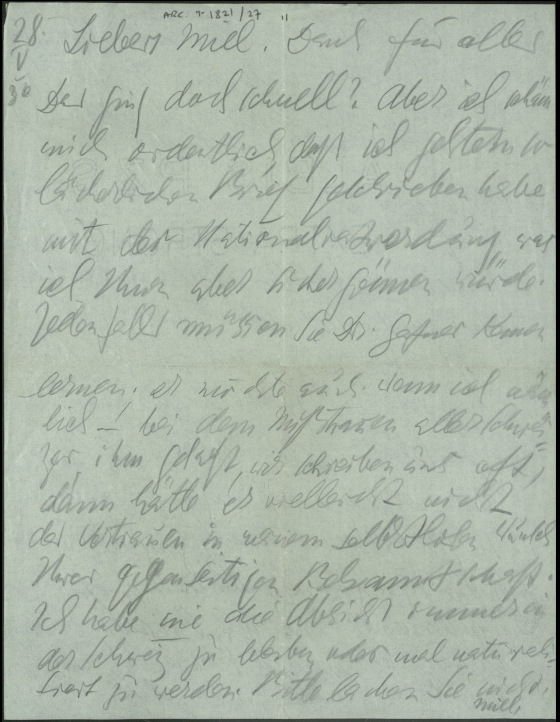 ARC. 4° 1821/27
28. Liebers Emil. Dank für alles
V
30
Das ging doch schnell? Aber ich schäm
mich ordentlich, daß ich gestern so
liederlichen Brief geschrieben habe
mit der Nationalratswerdung was
ich Ihnen aber sicher gönnen würde.
Jedenfalls müssen Sie Dr. kennen
lernen. er möchte auch. wenn ich
lich – bei dem Mißtrauen aller Schwei=
zer ihm gesagt, wir schreiben uns oft,
dann hätte er vielleicht nicht
das Vertrauen in meinem selbstlosen Wunsch
Ihrer gegenseitigen Bekanntschaft.
Ich habe nie die Absicht immer in
der Schweiz zu bleiben oder mal naturali-
siert zu werden. Bitte lachen Sie nicht.